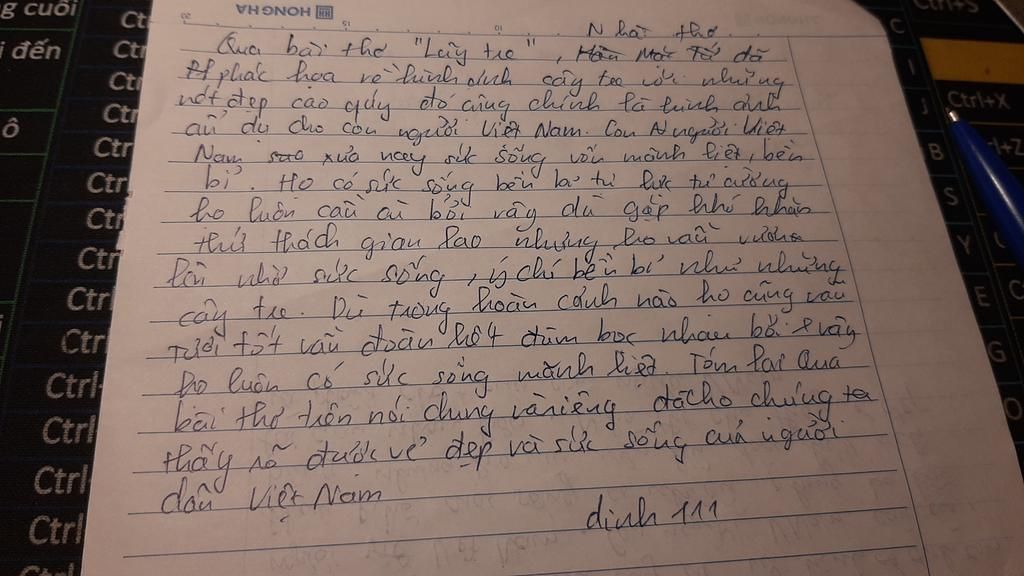 HONG HA
Nhà thơ
Qua bài thơ "Lũy tre", Hàn Mặc Tử đã
phác họa về hình ảnh cây tre với những
nét đẹp cao quý đó cũng chính là hình ảnh
ẩn dụ cho con người Việt Nam. Con người Việt
Nam xưa nay sức sống vốn mãnh liệt, bền
bỉ. Họ có sức sống bền bỉ tự lực tự cường
họ luôn cần cù bởi vậy dù gặp khó khăn
thử thách gian lao nhưng họ vẫn vươn
lên nhờ sức sống, ý chí bền bỉ như những
cây tre. Dù trong hoàn cảnh nào họ cũng vẫn
tươi tốt vẫn đoàn kết đùm bọc nhau bởi vậy
họ luôn có sức sống mãnh liệt. Tóm lại Qua
bài thơ trên nói chung và riêng đã cho chúng ta
thấy rõ được vẻ đẹp và sức sống của người
dân Việt Nam
dinh 111
g cuối
i đến
ô
Ctrl
Ctrl
Ctrl
Ctrl
Ctrl
Ctrl
Ctrl
Ctrl
Ctrl+S
Ctrl+X